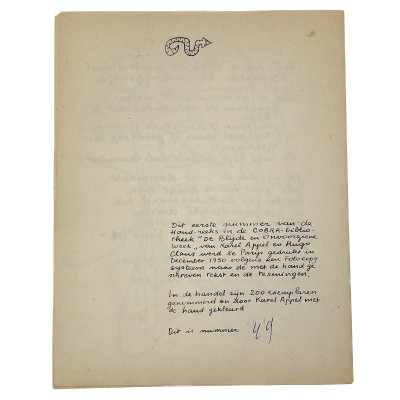 Dit eerste nummer van de
Hand-reeks in de COBRA-biblio-
theek "De Blijde en Onvoorziene
Week" van Karel Appel en Hugo
Claus werd te Parijs gedrukt in
December 1950 volgens een Fotocopy
systeem naar de met de hand ge
schreven tekst en de tekeningen.
In de handel zijn 200 exemplaren
genummerd en door Karel Appel met
de hand gekleurd
Dit is nummer 49